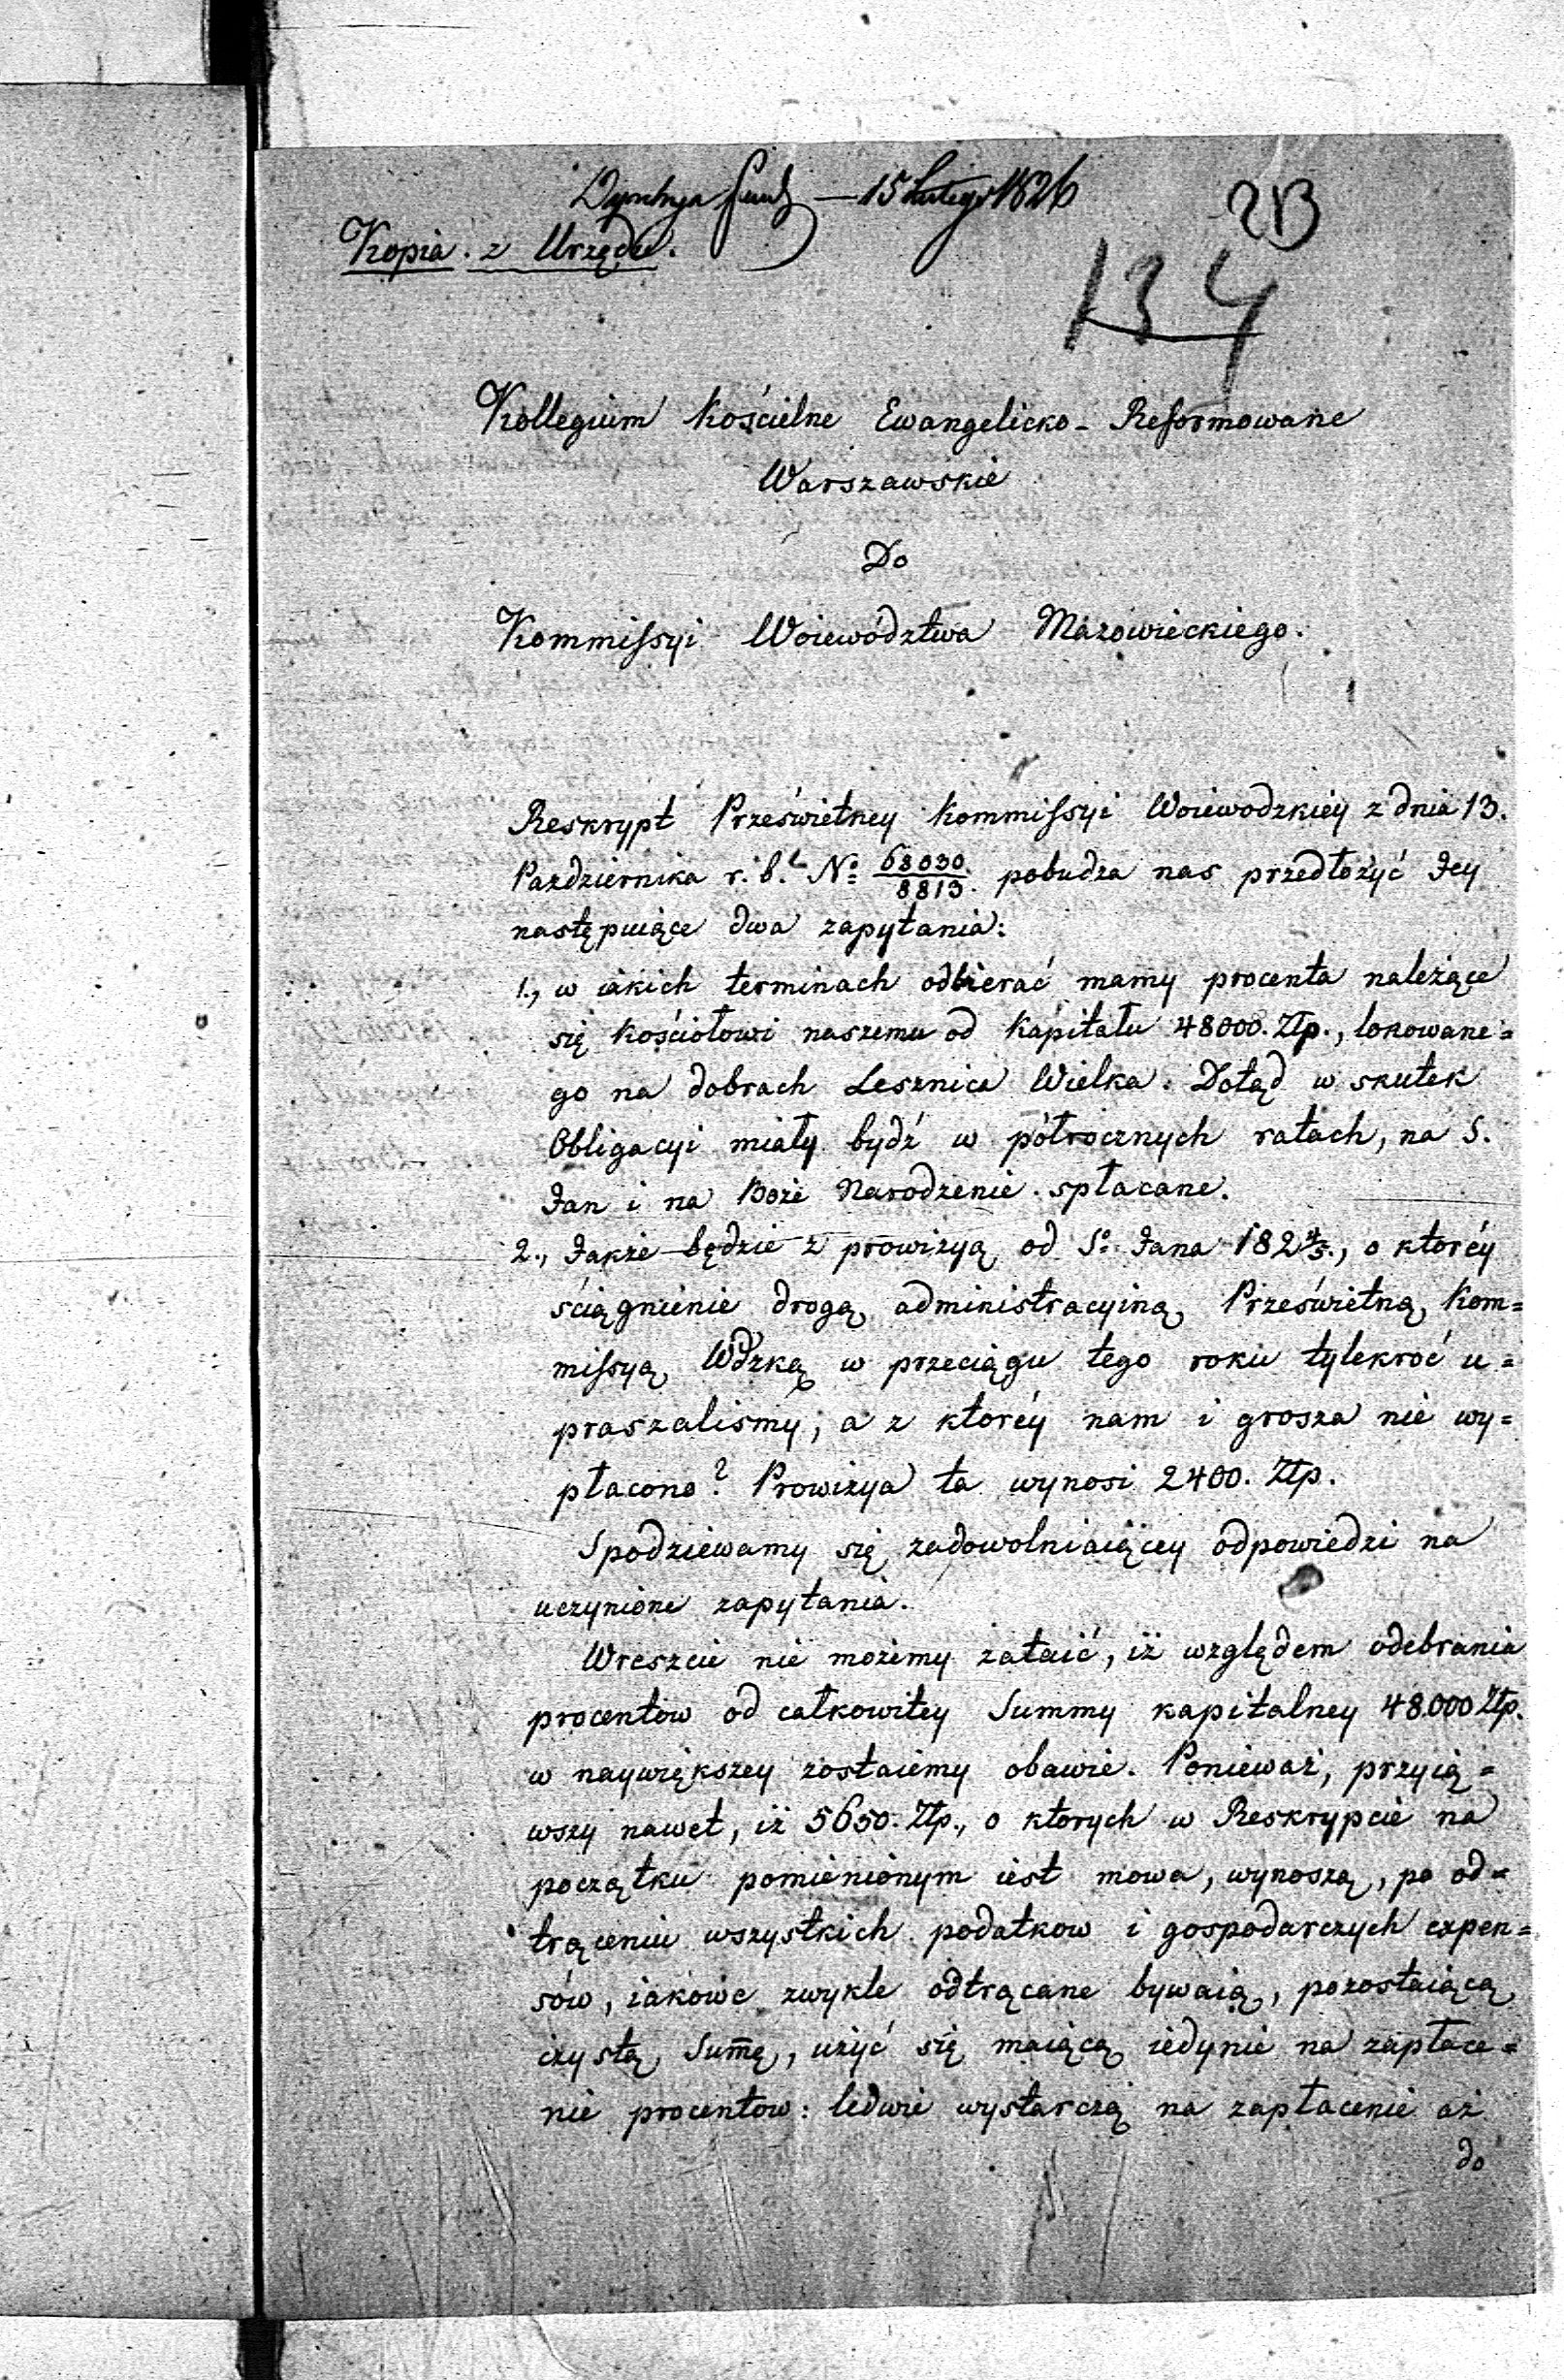 15 Lutego 1826
213
Kopia z Urzędu.
134
Kollegium Kościelne Ewangelicko-Reformowane
Warszawskie
Do
Kommissyi Woiewództwa Mazowieckiego.
Reskrypt Prześwietney Kommissyi Woiewodzkiéy z dnia 13.
Pazdziernika r. b. No 68030/8813. pobudza nas przedłożyć Jey
następuiące dwa zapytania:
1., w iakich terminach odbierać mamy procenta należące
się Kościołowi naszemu od Kapitału 48000. Złp., lokowane=
go na dobrach Lesznica Wielka. Dotąd w skutek
Obligacyi miały bydź w półrocznych ratach, na S.
Jan i na Boże Narodzenie spłacane.
2., Jakże będzie z prowizyą od So Jana 1824/5., o którey
ściągnienie drogą administracyiną Prześwietną Kom=
missyą Wdzką w przeciągu tego roku tylekroć u=
praszalismy, a z którey nam i grosza nie wy=
płacono? Prowizya ta wynosi 2400. Złp.
Spodziewamy się zadowolniaiącey odpowiedzi na
uczynione zapytania.
Wreszcie nie możemy zataić, iż względem odebrania
procentow od całkowitey Summy kapitalney 48.000 Złp.
w naywiększey zostaiemy obawie. Ponieważ, przyią=
wszy nawet, iż 5650. Złp., o ktorych w Reskrypcie na
początku pomienionym iest mowa, wynoszą, po od=
trąceniu wszystkich podatkow i gospodarczych expen=
sów, iakowe zwykle odtrącane bywaią, pozostaiącą
czystą Sum̄ę, użyć się maiącą iedynie na zapłace=
nie procentow: ledwie wystarczą na zapłacenie aż
do